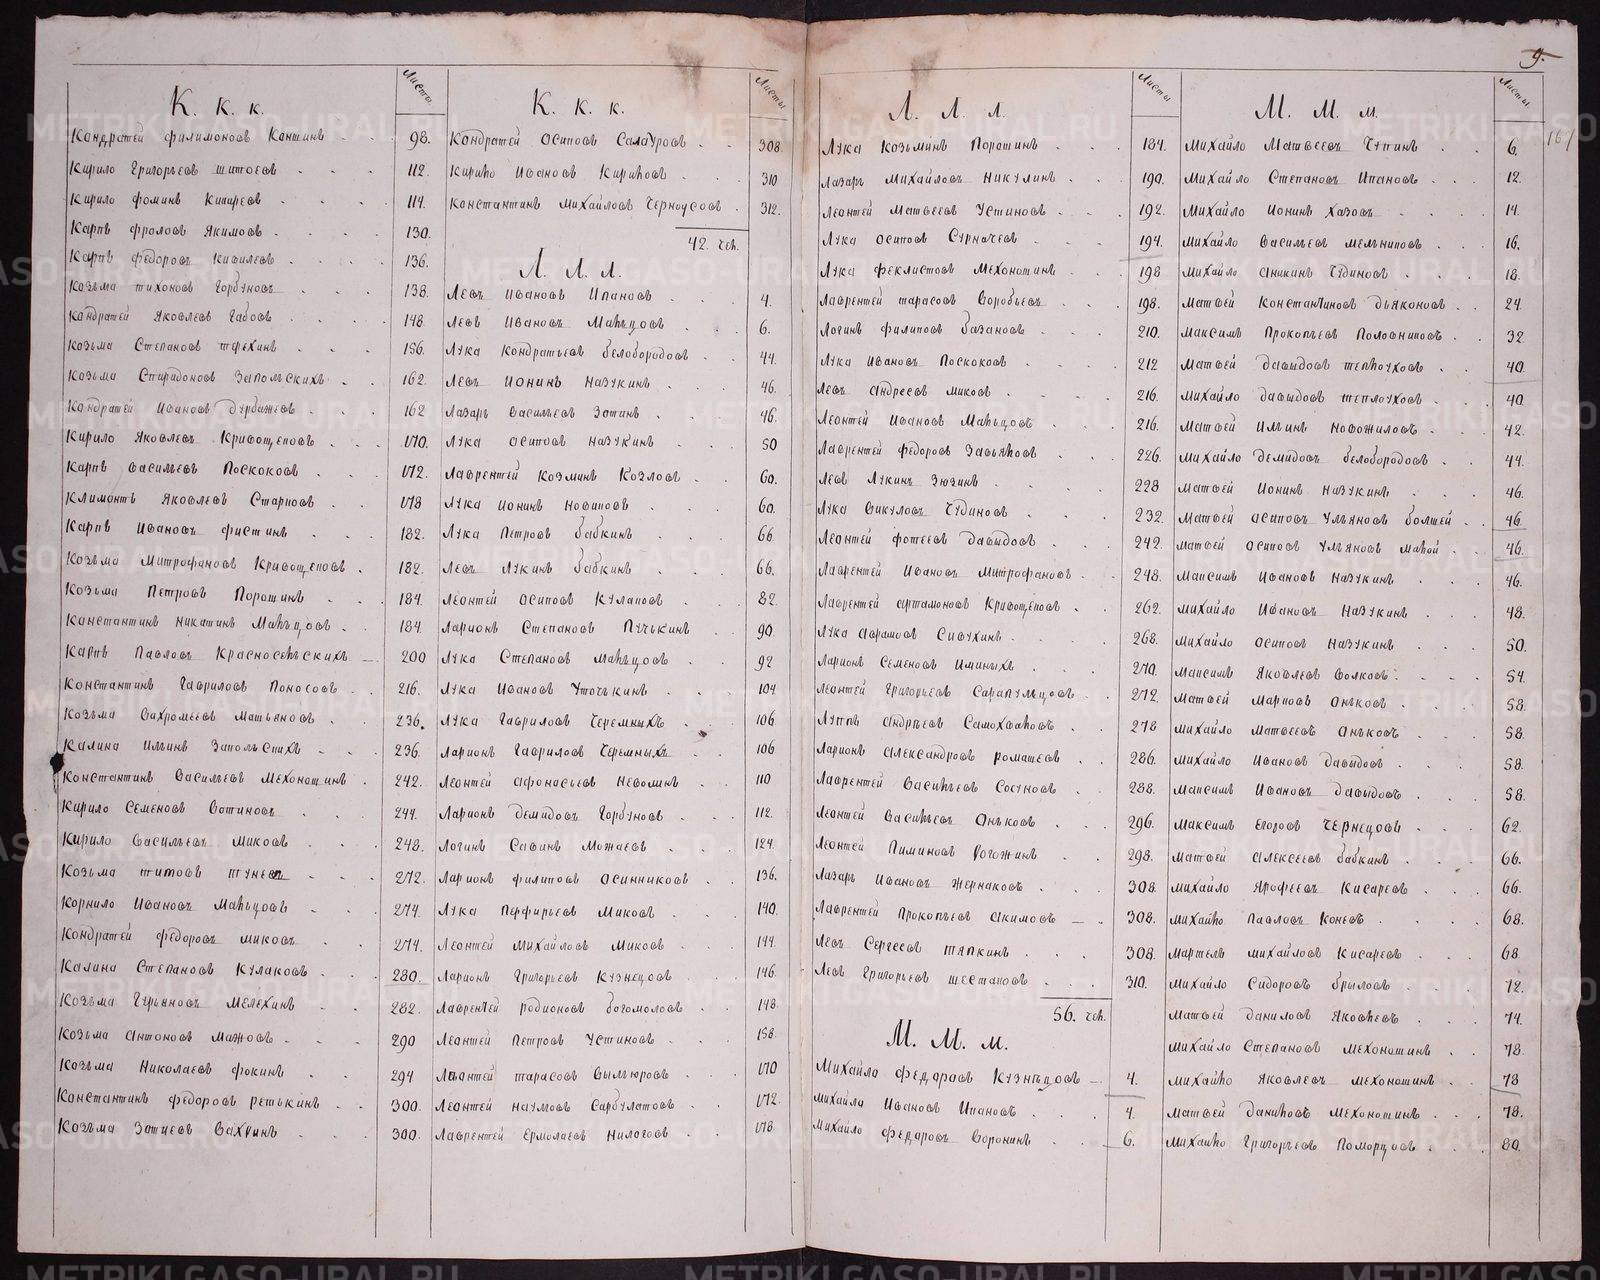 К. к. к.
Листы
Кондратей филимонов Коншинъ 98.
Кирило Григорьевъ шитоевъ 112.
Кирило фоминъ Кипаревъ 114.
Карпъ фроловъ Якимовъ 130.
Карпъ федоровъ Киселевъ 136.
Козьма тихоновъ Горбуновъ 138.
Кондратей Яковлевъ Габовъ 148
Козьма Степановъ 156.
Козьма Спиридоновъ Запольскихъ 162.
Кондратей Ивановъ 162
Кирило Яковлевъ Кривощековъ 170.
Карпъ васильевъ Поскоковъ 172.
Климонтъ Яковлевъ Старковъ 178
Карпъ Ивановъ фистинъ 182.
Козьма Митрофановъ Кривощековъ 182.
Козьма Петровъ Порошинъ 184.
Константинъ Никитинъ Мальцовъ 184.
Карпъ Павловъ Красносельскихъ 200
Константинъ Гавриловъ Поносовъ 216.
Козьма Вахромеевъ Матьяновъ 236.
Калина Ильинъ Запольскихъ 236.
Константинъ Васильевъ Мехоношинъ 242.
Кирило Семеновъ Вотиновъ 244.
Кирило Васильевъ Миковъ 248.
Козьма титовъ 272.
Корнило Ивановъ Мальцовъ 274.
Кондратей федоровъ миковъ 274.
Калина Степановъ Кулаковъ 280.
Козьма Гурьяновъ Мелехинъ 282.
Козьма Антоновъ Мажовъ 290
Козьма Николаевъ фокинъ 294
Константинъ федоровъ ретькинъ 300.
Козьма Зотиевъ Вахринъ 300.
К. к. к.
Листы
Кондратей Осиповъ Салауровъ 308.
Кирило Ивановъ Кириловъ 310
Константинъ Михайловъ Черноусовъ 312.
42. чел.
Л. л. л.
Левъ Ивановъ Ипановъ 4.
Левъ Ивановъ Мальцовъ 6.
Лука Кондратьевъ белобородовъ 44.
Левъ Ионинъ Назукинъ 46.
Лазарь Васильевъ Зотинъ 46.
Лука Осиповъ Назукинъ 50
Лаврентей Козминъ Козловъ 60.
Лука Ионинъ Новиковъ 60.
Лука Петровъ бабкинъ 66.
Левъ Лукинъ бабкинъ 66.
Леонтей Осиповъ Кулаковъ 82.
Ларионъ Степановъ Пучькинъ 90.
Лука Степановъ Мальцовъ 92
Лука Ивановъ Уточькинъ 104.
Лука Гавриловъ Черемныхъ 106.
Ларионъ Гавриловъ Черемныхъ 106
Леонтей Афонасьевъ Неволинъ 110
Ларионъ Демидовъ Горбуновъ 112.
Логинъ Савинъ Можаевъ 124.
Ларионъ филиповъ Осинниковъ 136.
Лука Перфирьевъ Миковъ 140.
Леонтей Михайловъ Миковъ 144.
Ларионъ Григорьевъ Кузнецовъ 146.
Лаврентей родионовъ богомоловъ 148.
Леонтей Петровъ Устиновъ 158.
Леонтей тарасовъ 170
Леонтей наумовъ Сарбулатовъ 172.
Лаврентей Ермолаевъ Нилоговъ 178.
Л. Л. л.
Листы
9.
Лука Козьминъ Порошинъ 184.
Лазарь Михайловъ Никулинъ 190.
Леонтей Матвеевъ Устиновъ 192.
Лука осиповъ Сурначевъ 194.
Лука феклистовъ Мехоношинъ 198
Лаврентей тарасовъ Воробьевъ 198.
Логинъ филиповъ базановъ 210.
Лука Ивановъ Поскоковъ 212
Левъ Андреевъ миковъ 216.
Леонтей Ивановъ Мальцовъ 216.
Лаврентей федоровъ Завьяловъ 226.
Левъ Лукинъ Зюзинъ 228
Лука Викуловъ Чудиновъ 232.
Леонтей фотеевъ Давыдовъ 242.
Лаврентей Ивановъ Митрофановъ 248.
Лаврентей артамоновъ Кривощековъ 262.
Лука аврамовъ Сивухинъ 268.
Ларионъ Семеновъ 270.
Леонтей Григорьевъ Сарапульцовъ 272.
Луппъ Андреевъ Самохваловъ 278
Ларионъ Александровъ ромашевъ 286.
Лаврентей Васильевъ Сосуновъ 288.
Леонтей Васильевъ Оньковъ 296.
Леонтей Пиминовъ рогожинъ 298.
Лазарь Ивановъ Жернаковъ 308.
Лаврентей Прокопьевъ Акимовъ 308.
Левъ Сергеевъ тяпкинъ 308.
Левъ Григорьевъ шестаковъ 310.
56. чел.
М. М. м.
Михайло федоровъ Кузнецовъ 4.
Михайла Ивановъ Ипановъ 4.
Михайло федоровъ Воронинъ 6.
М. М. м.
Листы
Михайло Матвеевъ Чупинъ 6.
Михайло Степановъ Ипановъ 12.
Михайло Ионинъ Хазовъ 14.
Михайло васильевъ мельниковъ 16.
Михайло Аникинъ Чудиновъ 18.
Матвей Константиновъ Дьяконовъ 24.
Максимъ Прокопьевъ Половниковъ 32.
Матвей давыдовъ теплоуховъ 40.
Михайло давыдовъ теплоуховъ 40.
Матвей Ильинъ Новожиловъ 42.
Михайло Демидовъ белобородовъ 44.
Матвей Ионинъ Назукинъ 46.
Матвей осиповъ Ульяновъ большей 46.
Матвей осиповъ Ульяновъ малой 46.
Максимъ Ивановъ Назукинъ 46.
Михайло Ивановъ Назукинъ 48.
Михайло осиповъ Назукинъ 50.
Максимъ Яковлевъ Волковъ 54.
Матвей Марковъ Оньковъ 58.
Михайло Матвеевъ Оньковъ 58.
Михайло Ивановъ Давыдовъ 58.
Максимъ Ивановъ Давыдовъ 58.
Максимъ Егоровъ Чернецовъ 62.
Матвей Алексеевъ бабкинъ 66.
Михайло Ярофеевъ Кисаревъ 66.
Михайло Павловъ Коневъ 68.
Мартемъ михайловъ Кисаревъ 68.
Михайло Сидоровъ брыловъ 72.
Матвей Даниловъ Яковлевъ 74.
Михайло Степановъ Мехоношинъ 78.
Михайло Яковлевъ Мехоношинъ 78
Матвей Даниловъ Мехоношинъ 78.
Михайло Григорьевъ Поморцовъ 80.
METRIKI.GASO-URAL.RU